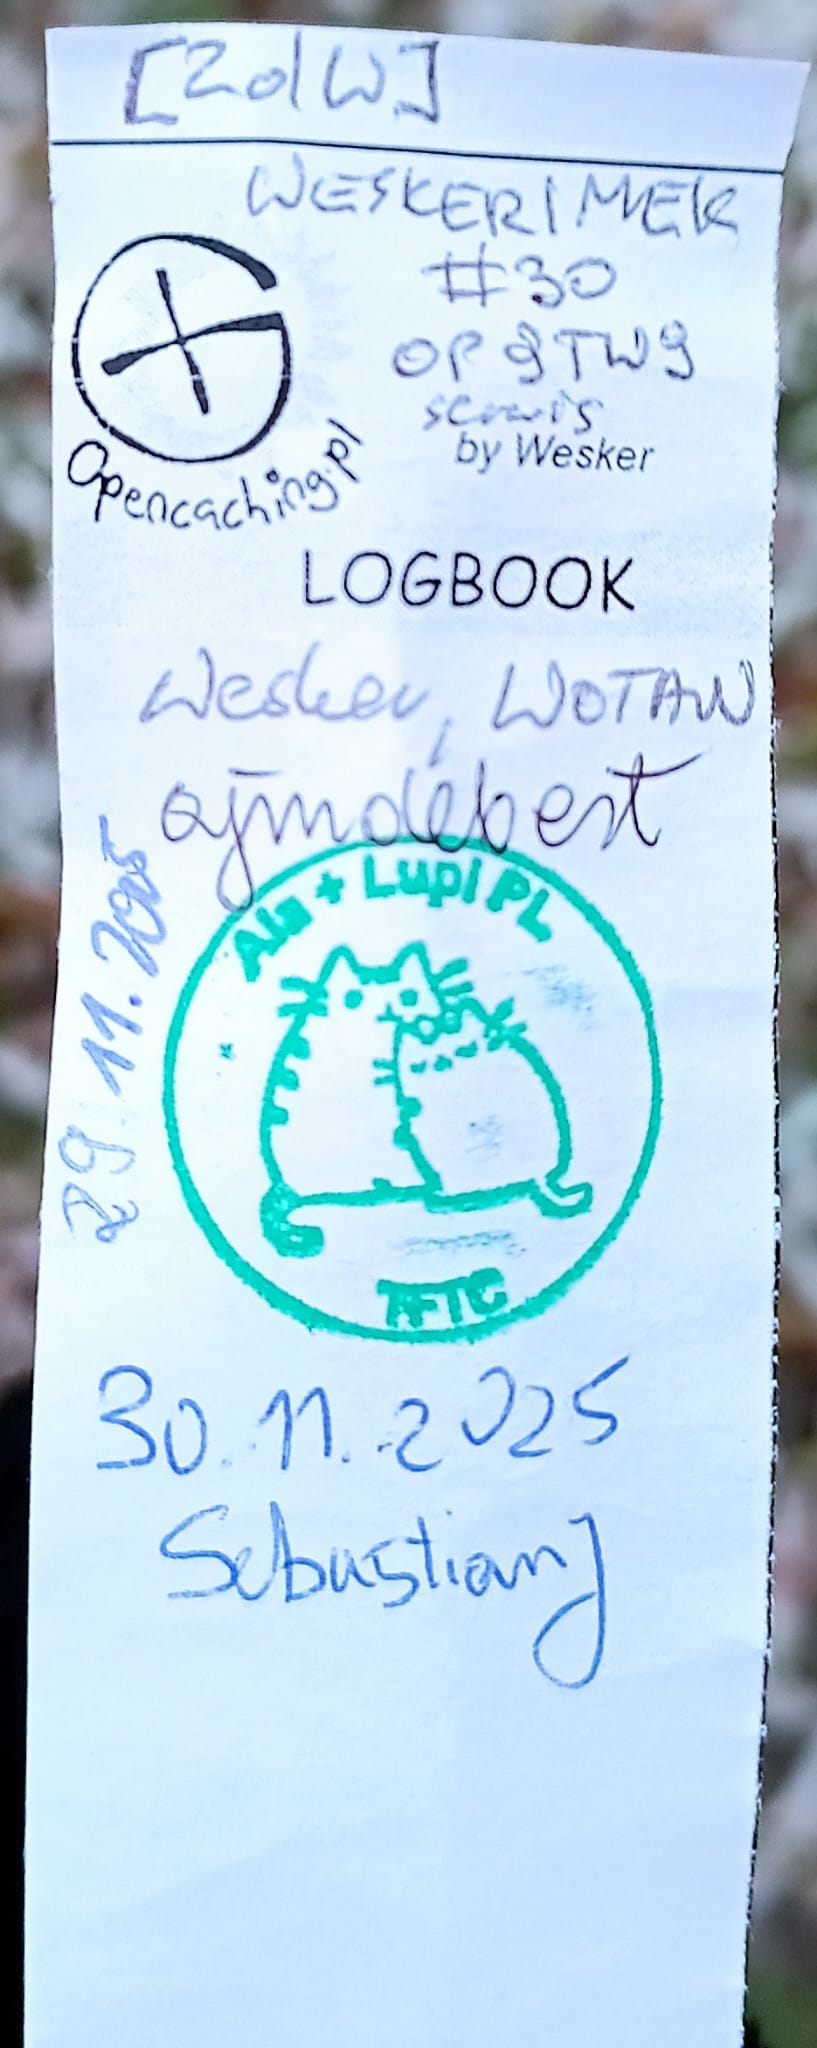 [ZdW]
WESKERIMEK
#30
OP9TW9
serwis
by Wesker
Opencaching.pl
LOGBOOK
Wesker, WOTAN
ajmdebest
29.11.2025
Ala + Lupi PL
TFTC
30.11.2025
SebastianJ